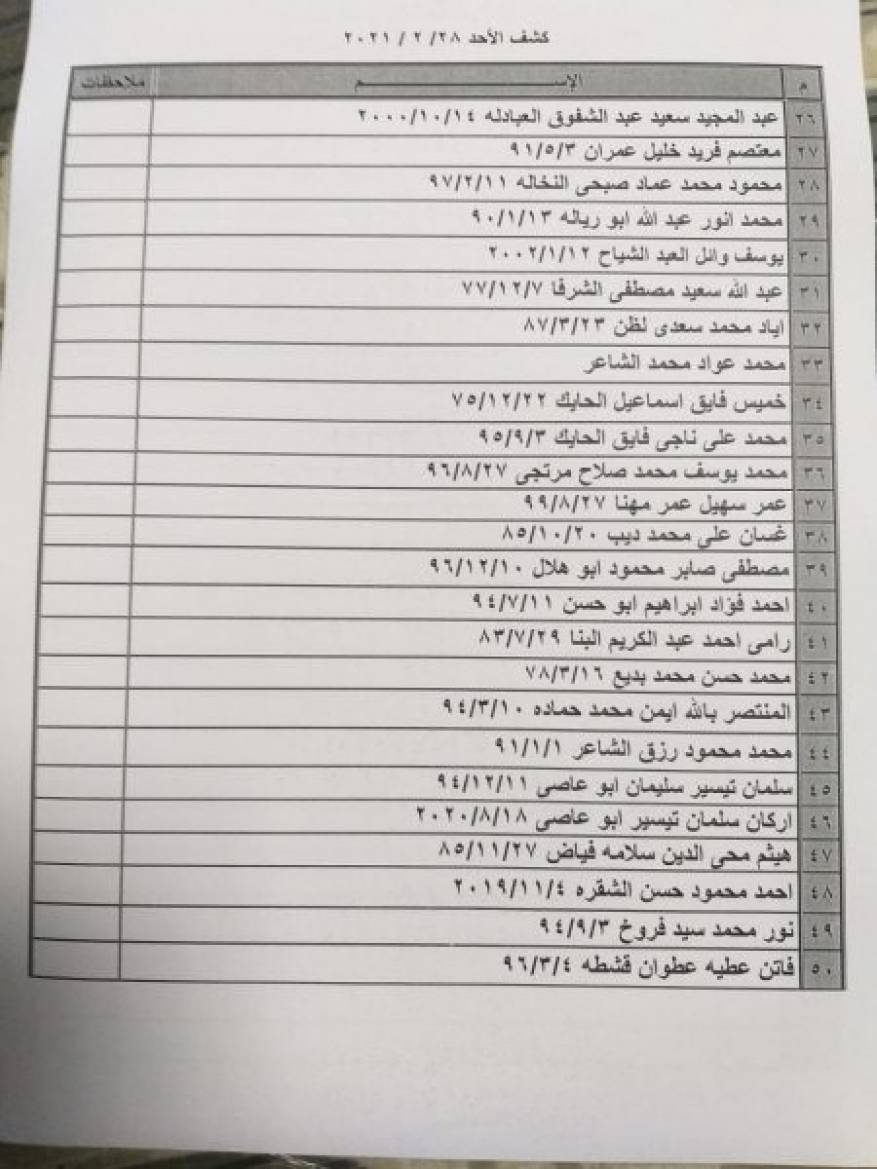 كشف الأحد ٢٨/ ٢ / ٢٠٢١
م الإســــــــم ملاحظات
٢٦ عبد المجيد سعيد عبد الشفوق العبادله ٢٠٠٠/١٠/١٤
٢٧ معتصم فريد خليل عمران ٩١/٥/٣
٢٨ محمود محمد عماد صبحى النخاله ٩٧/٢/١١
٢٩ محمد انور عبد الله ابو رياله ٩٠/١/١٣
٣٠ يوسف وائل العبد الشياح ٢٠٠٢/١/١٢
٣١ عبد الله سعيد مصطفى الشرفا ٧٧/١٢/٧
٣٢ اياد محمد سعدى لظن ٨٧/٣/٢٣
٣٣ محمد عواد محمد الشاعر
٣٤ خميس فايق اسماعيل الحايك ٧٥/١٢/٢٢
٣٥ محمد على ناجى فايق الحايك ٩٥/٩/٣
٣٦ محمد يوسف محمد صلاح مرتجى ٩٦/٨/٢٧
٣٧ عمر سهيل عمر مهنا ٩٩/٨/٢٧
٣٨ غسان على محمد ديب ٨٥/١٠/٢٠
٣٩ مصطفى صابر محمود ابو هلال ٩٦/١٢/١٠
٤٠ احمد فؤاد ابراهيم ابو حسن ٩٤/٧/١١
٤١ رامى احمد عبد الكريم البنا ٨٣/٧/٢٩
٤٢ محمد حسن محمد بديع ٧٨/٣/١٦
٤٣ المنتصر بالله ايمن محمد حماده ٩٤/٣/١٠
٤٤ محمد محمود رزق الشاعر ٩١/١/١
٤٥ سلمان تيسير سليمان ابو عاصى ٩٤/١٢/١١
٤٦ اركان سلمان تيسير ابو عاصى ٢٠٢٠/٨/١٨
٤٧ هيثم محى الدين سلامه فياض ٨٥/١١/٢٧
٤٨ احمد محمود حسن الشقره ٢٠١٩/١١/٤
٤٩ نور محمد سيد فروخ ٩٤/٩/٣
٥٠ فاتن عطيه عطوان قشطه ٩٦/٣/٤